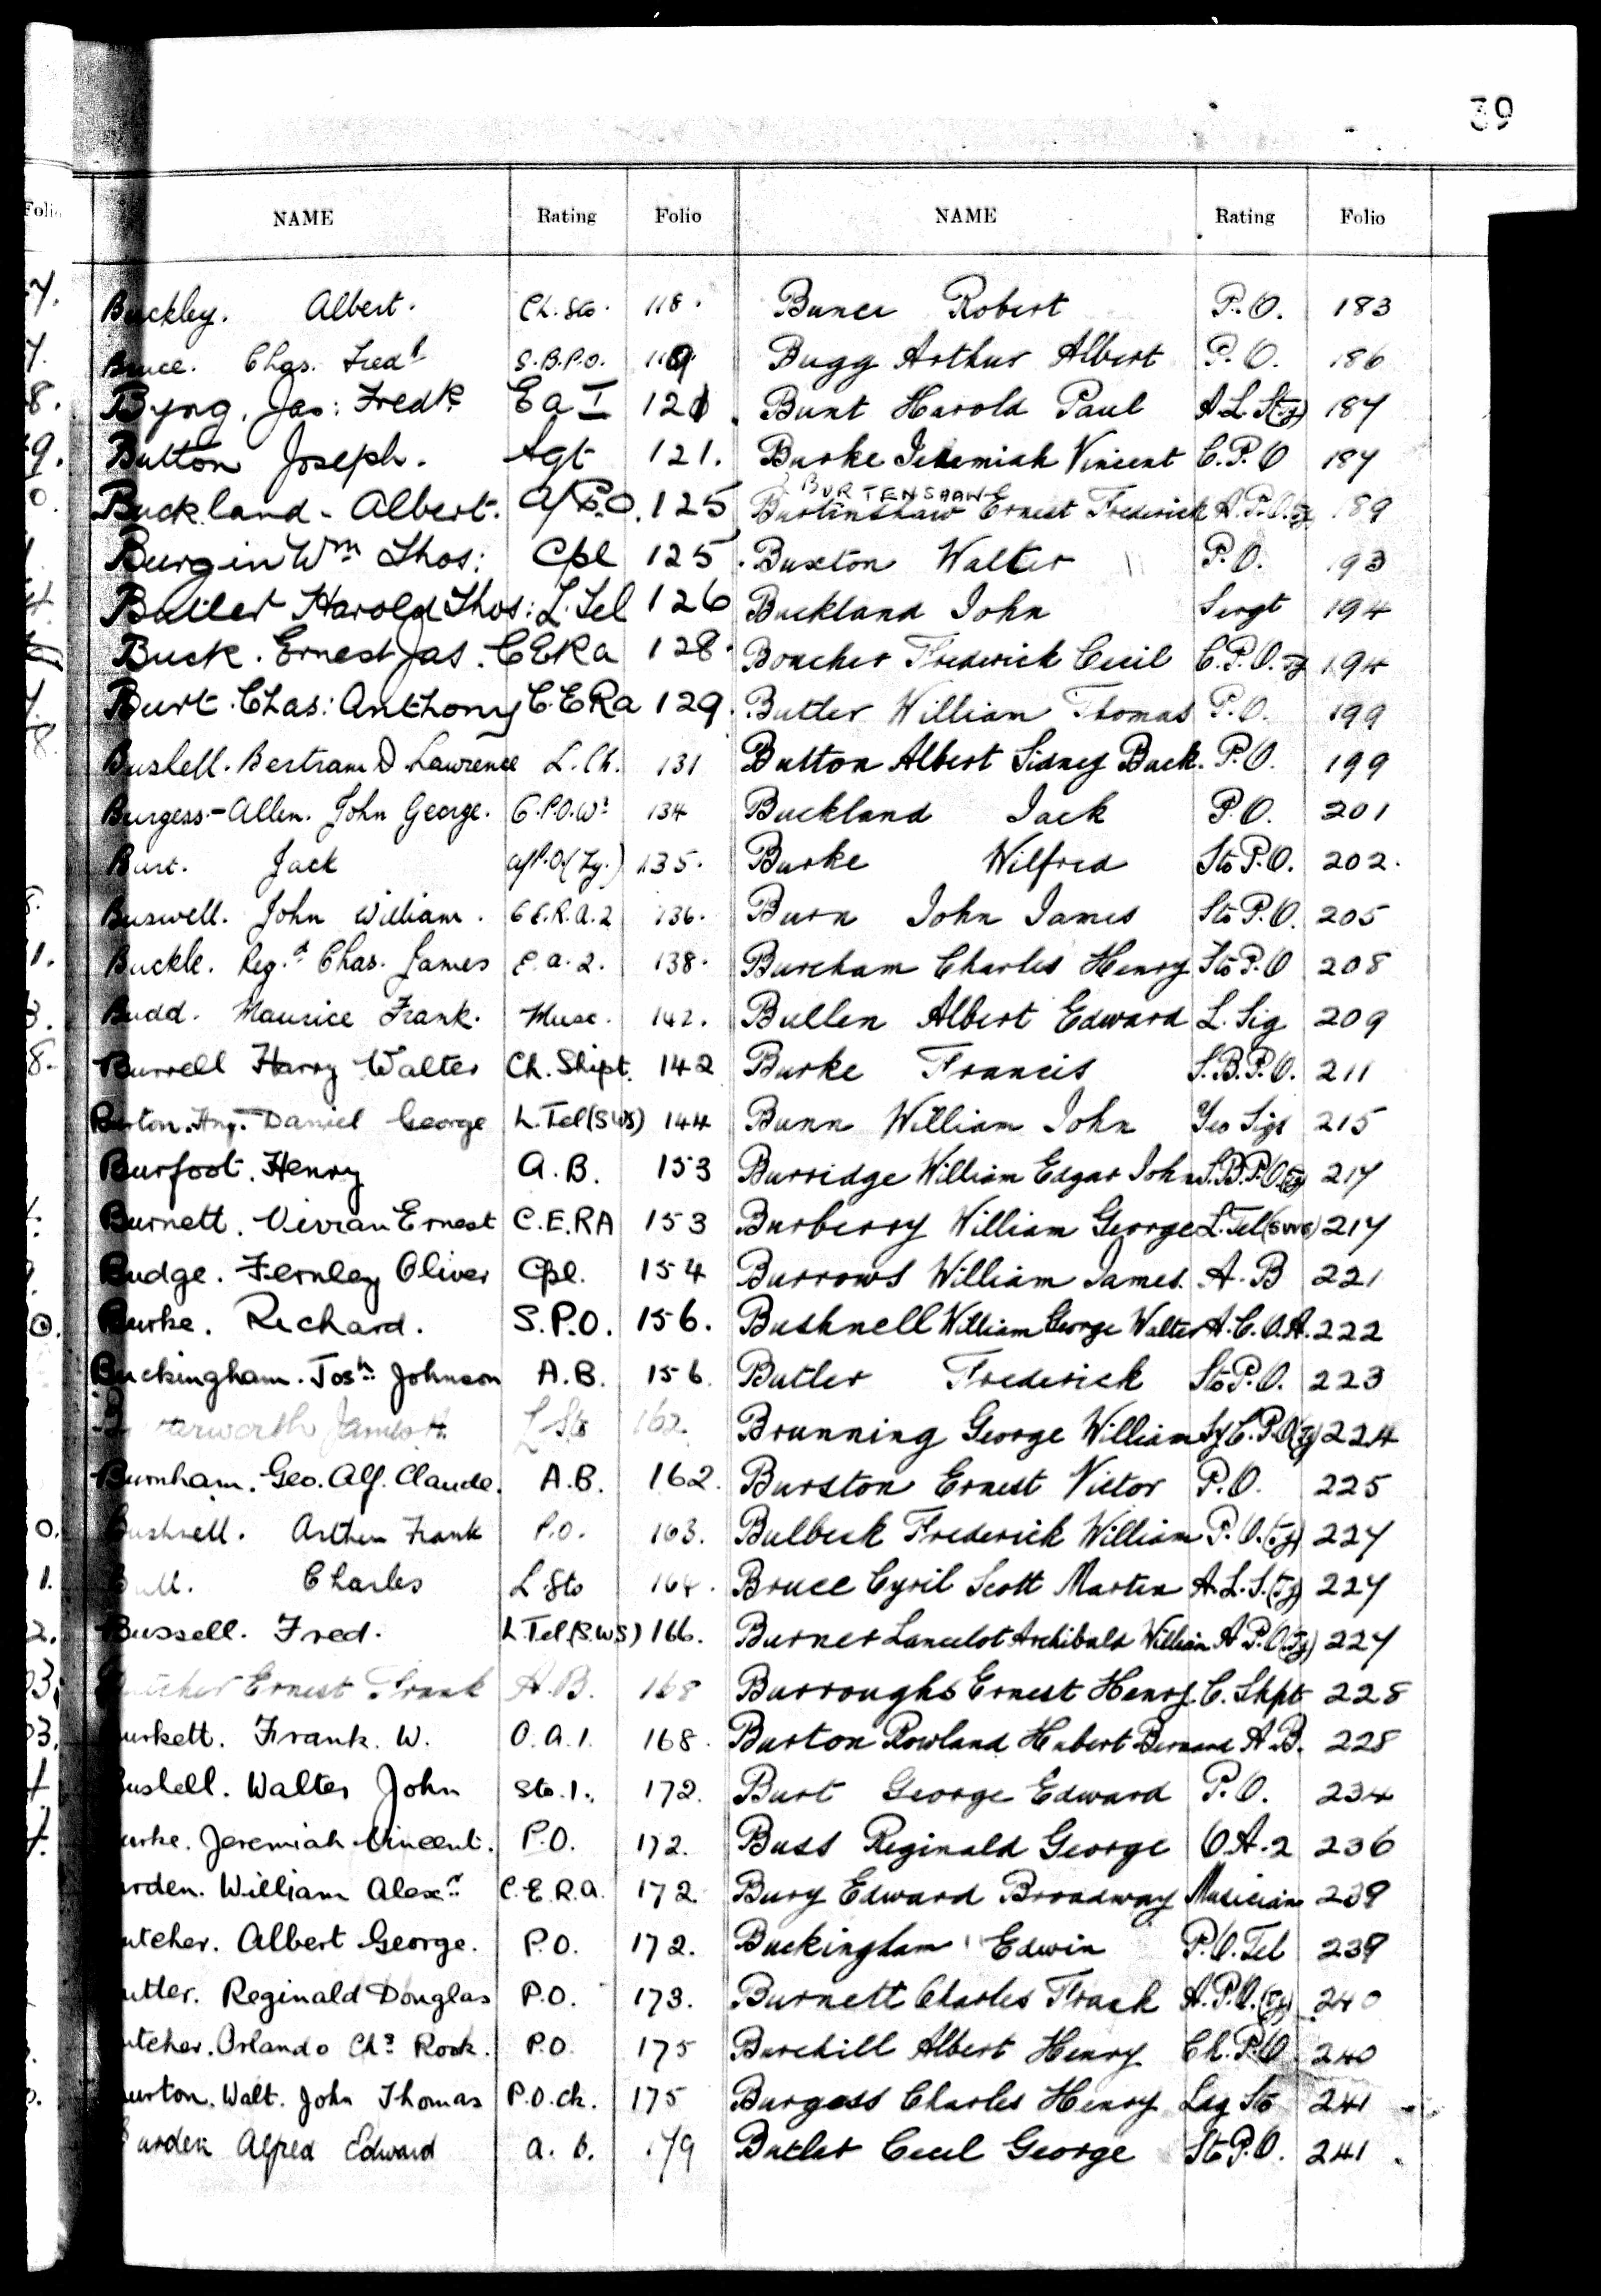 39
Folio
NAME Rating Folio
Buckley. Albert. Ch. Sto. 118.
Bruce. Chas. Fredk S.B.P.O. 119
Byng. Jas: Fredk. Ea I 121.
Button Joseph. Sgt 121.
Buckland - Albert. a/P.O. 125
Burgin Wm Thos: Cpl 125
Butler Harold Thos: L.Tel 126
Buck. Ernest Jas. CERa 128.
Burt. Chas: Anthony C.ERa 129.
Bushell. Bertram D Lawrence L.Ch. 131
Burgess-Allen. John George. C.P.O.Wr 134
Burt. Jack a/P.O.(Ty.) 135.
Buswell. John William. C.E.R.A.2 136.
Buckle. Reg.d Chas. James E.a.2. 138.
Budd. Maurice Frank. Musc. 142.
Burrell Harry Walter Ch. Shipt. 142
Burton. Hny. Daniel George L.Tel(SWS) 144
Burfoot. Henry A.B. 153
Burnett. Vivian Ernest C.E.RA 153
Budge. Fernley Oliver Cpl. 154
Burke. Richard. S.P.O. 156.
Buckingham. Josh. Johnson A.B. 156.
Butterworth James H. L Sto 162.
Burnham. Geo. Alf. Claude. A.B. 162.
Bushnell. Arthur Frank P.O. 163.
Bull. Charles L.Sto 164.
Bussell. Fred. L.Tel(S.WS) 166.
Butcher Ernest Frank A.B. 168
urkett. Frank. W. O.A.1. 168.
ushell. Walter John Sto.1. 172.
urke. Jeremiah Vincent. P.O. 172.
urden. William Alexr. C.E.R.A. 172.
utcher. Albert George. P.O. 172.
utler. Reginald Douglas P.O. 173.
utcher. Orlando Chs Rook. P.O. 175
urton. Walt. John Thomas P.O.Ck. 175
urden Alfred Edward A.B. 179
NAME Rating Folio
Bunce Robert P.O. 183
Bugg Arthur Albert P.O. 186
Bunt Harold Paul A.L.St.(Ty) 187
Burke Jeremiah Vincent C.P.O 187
BURTENSHAW E
Burtinshaw Ernest Frederick A.P.O.Ty 189
Buxton Walter P.O. 193
Buckland John Sergt 194
Boucher Frederick Cecil C.P.O.Ty 194
Butler William Thomas P.O. 199
Button Albert Sidney Buck. P.O. 199
Buckland Jack P.O. 201
Burke Wilfred Sto P.O. 202.
Burn John James Sto P.O. 205
Burcham Charles Henry Sto P.O 208
Bullen Albert Edward L.Sig 209
Burke Francis S.B.P.O. 211
Bunn William John Yeo Sigs 215
Burridge William Edgar John S.B.P.O.(Ty) 217
Burberry William George L.Tel(SWS) 217
Burrows William James. A.B 221
Bushnell William George Walter A.C.O.A. 222
Butler Frederick Sto P.O. 223
Brunning George William Sy C.P.O(Ty) 224
Burston Ernest Victor P.O. 225
Bulbeck Frederick William P.O.(Ty) 227
Bruce Cyril Scott Martin A.L.S.(Ty) 227
Burner Lancelot Archibald William A.P.O.(Ty) 227
Burroughs Ernest Henry C. Shpt 228
Burton Rowland Hubert Bernard A.B. 228
Burt George Edward P.O. 234
Buss Reginald George O.A.2 236
Bury Edward Broadway Musician 239
Buckingham Edwin P.O.Tel 239
Burnett Charles Frank A.P.O.(Ty) 240
Burchill Albert Henry Ch.P.O 240
Burgess Charles Henry Ldg Sto 241
Butler Cecil George Sto P.O. 241